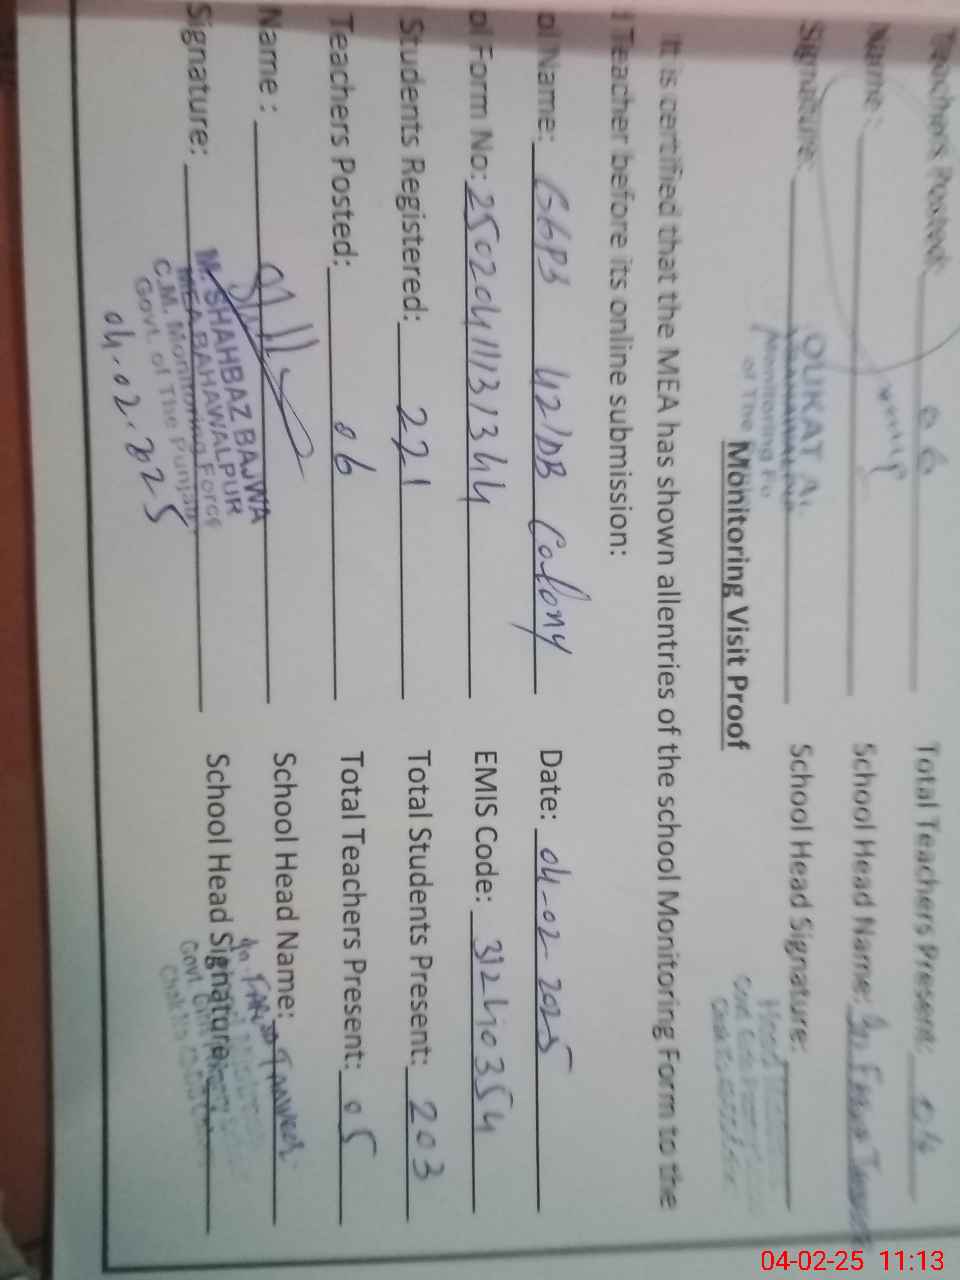 Teachers Posted: 06 Total Teachers Present: 04
Name: School Head Name:
Signature: School Head Signature:
OUKAT
Monitoring Fo
of The
Monitoring Visit Proof
It is certified that the MEA has shown allentries of the school Monitoring Form to the
Teacher before its online submission:
ol Name: GGPS 42/DB Colony Date: 04-02-2025
ol Form No: 25020411131344 EMIS Code: 31240354
Students Registered: 221 Total Students Present: 203
Teachers Posted: 06 Total Teachers Present: 05
Name : School Head Name:
Signature: School Head Signature:
M. SHAHBAZ BAJWA
MEA BAHAWALPUR
C.M. Monitoring Force
Govt. of The Punjab
04.02.2025
04-02-25 11:13